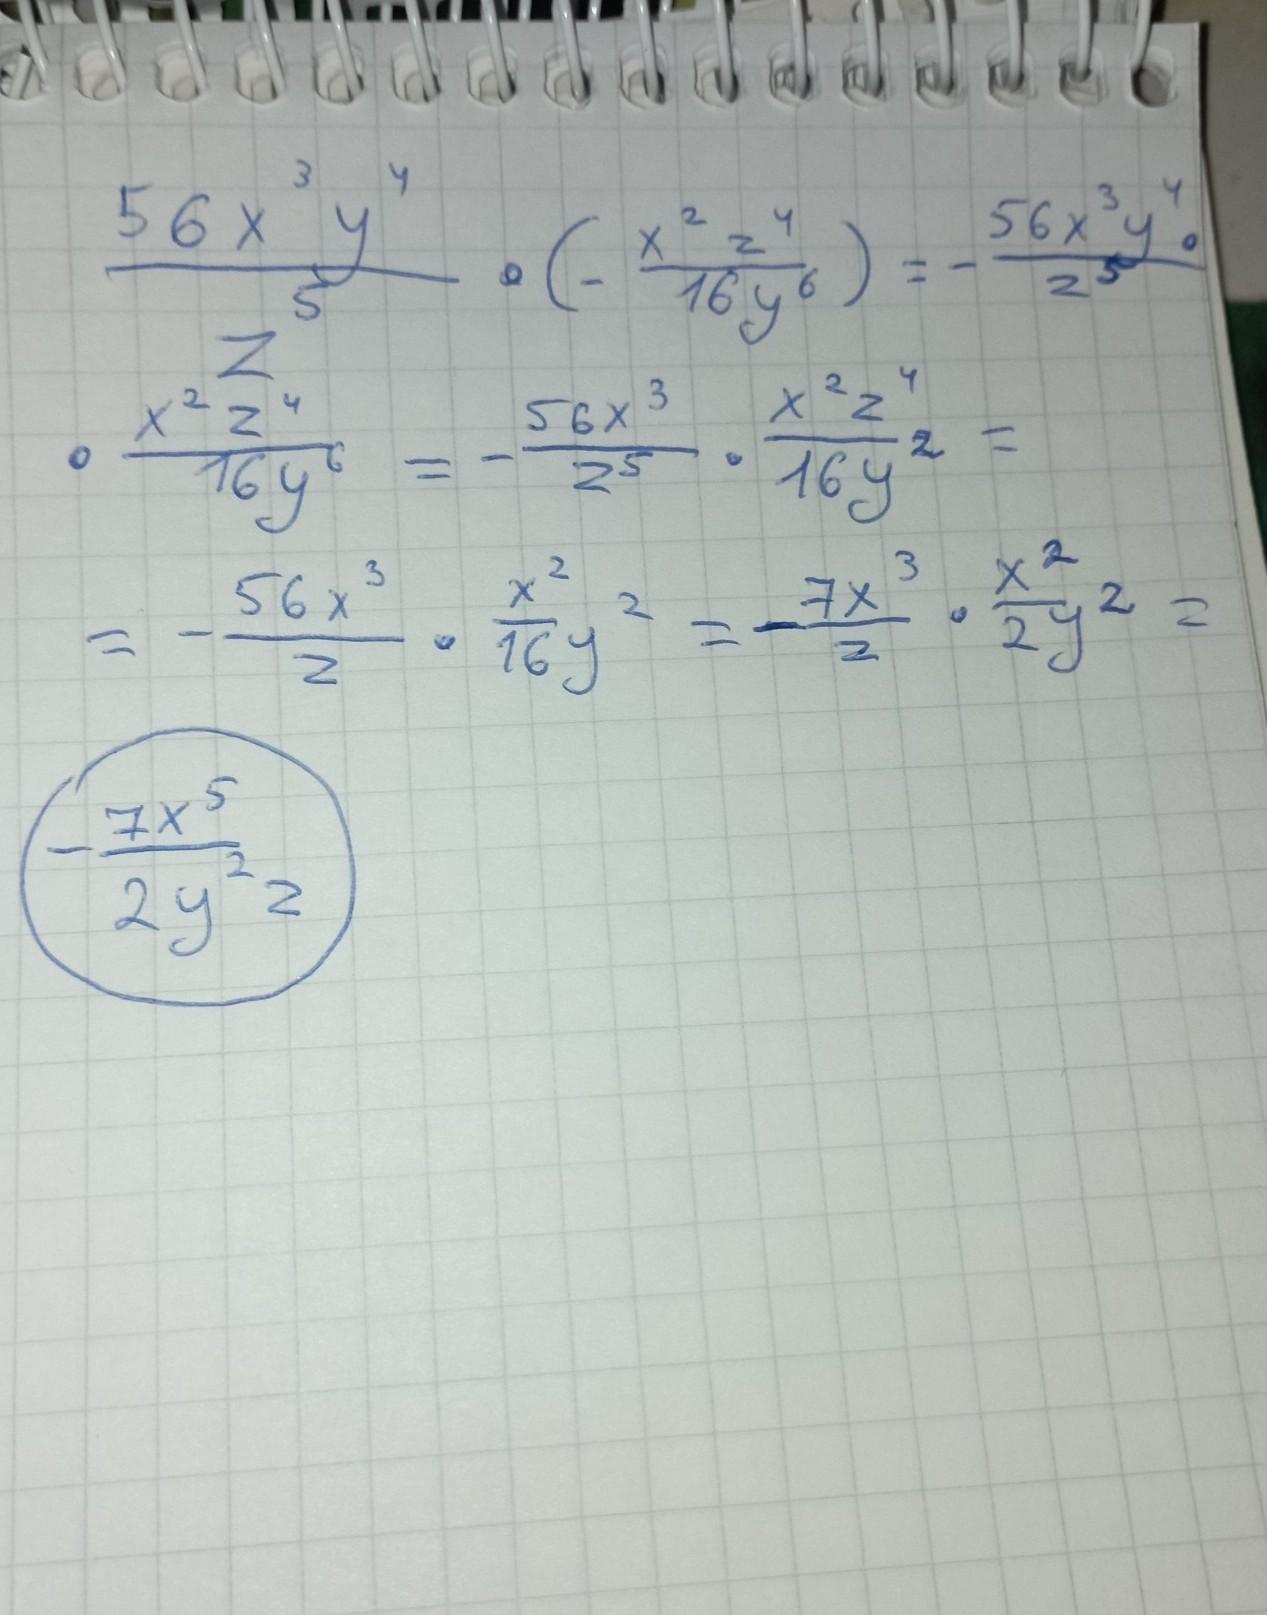 56x³y⁴/z⁵ • (- x²z⁴/16y⁶) = - 56x³y⁴/z⁵ •
• x²z⁴/16y⁶ = - 56x³/z⁵ • x²z⁴/16y² =
= - 56x³/z • x²/16y² = - 7x³/z • x²/2y² =
- 7x⁵/2y²z